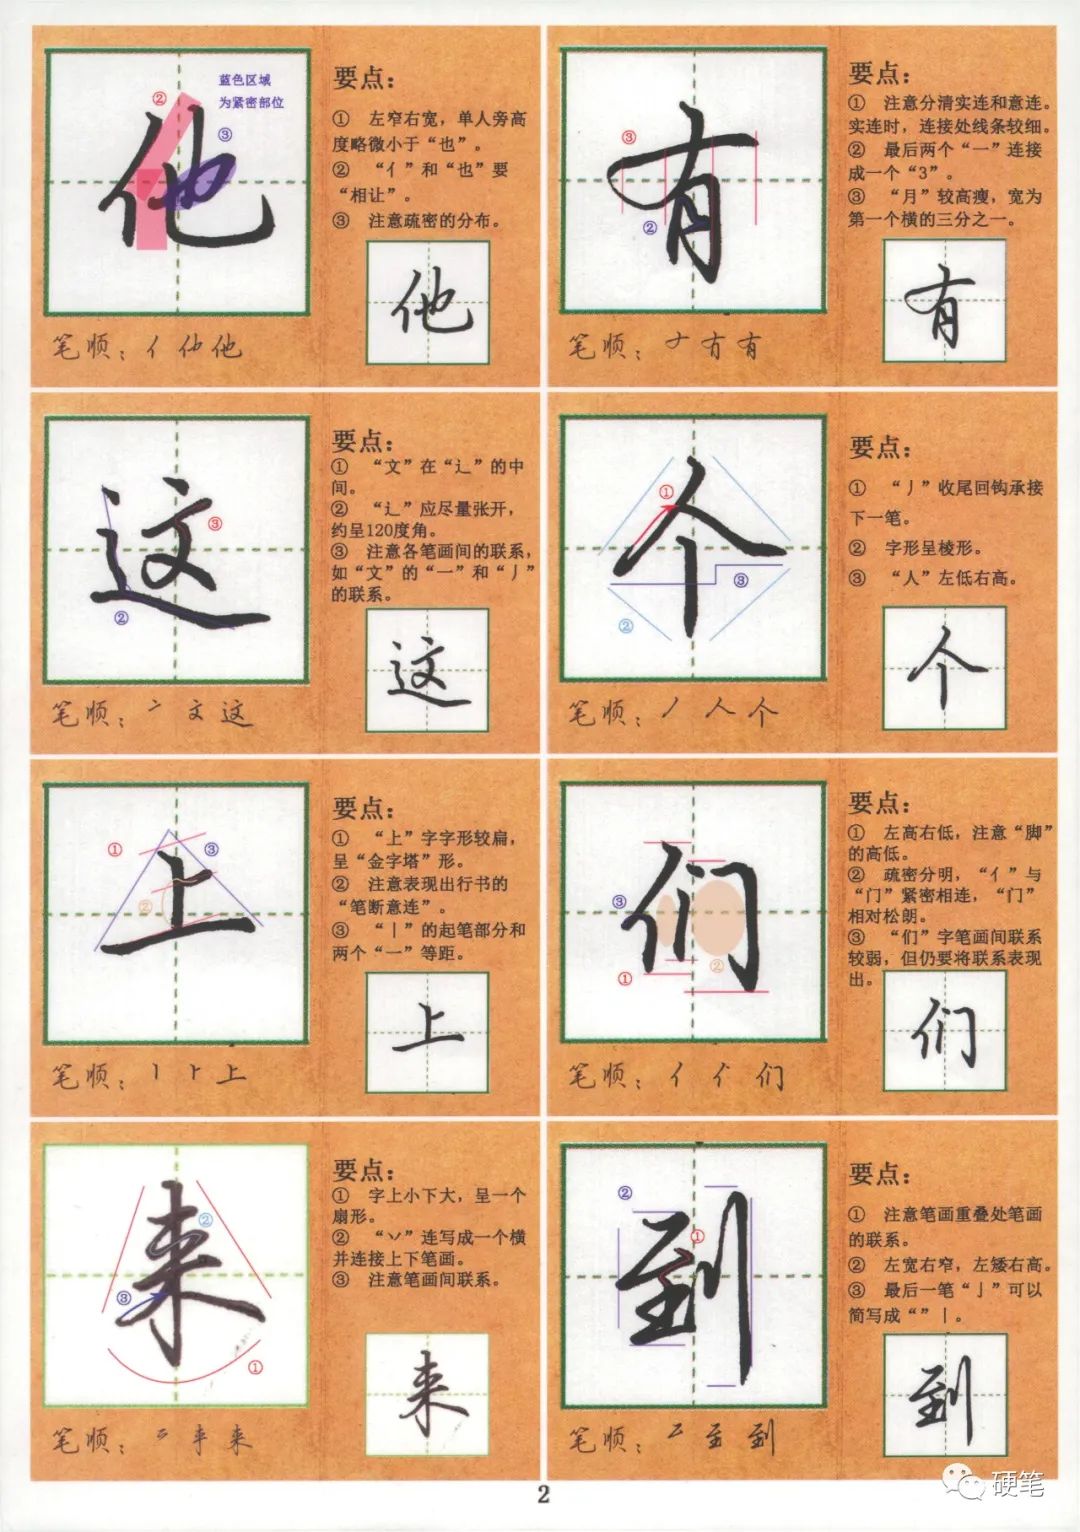 他
蓝色区域
为紧密部位
②
③
要点：
① 左窄右宽，单人旁高
度略微小于“也”。
② “亻”和“也”要
“相让”。
③ 注意疏密的分布。
他
笔顺：亻 他 他
有
③
②
要点：
① 注意分清实连和意连。
实连时，连接处线条较细。
② 最后两个“一”连接
成一个“3”。
③ “月”较高瘦，宽为
第一个横的三分之一。
有
笔顺：𠂇 有 有
这
③
②
要点：
① “文”在“辶”的中
间。
② “辶”应尽量张开，
约呈120度角。
③ 注意各笔画间的联系，
如“文”的“一”和“丿”
的联系。
这
笔顺：亠 文 这
个
①
③
②
要点：
① “丿”收尾回钩承接
下一笔。
② 字形呈棱形。
③ “人”左低右高。
个
笔顺：丿 人 个
上
①
③
②
要点：
① “上”字字形较扁，
呈“金字塔”形。
② 注意表现出行书的
“笔断意连”。
③ “丨”的起笔部分和
两个“一”等距。
上
笔顺：丨 ⺊ 上
们
③
①
②
要点：
① 左高右低，注意“脚”
的高低。
② 疏密分明，“亻”与
“门”紧密相连，“门”
相对松朗。
③ “们”字笔画间联系
较弱，但仍要将联系表现
出。
们
笔顺：亻 们
来
②
③
①
要点：
① 字上小下大，呈一个
扇形。
② “丷”连写成一个横
并连接上下笔画。
③ 注意笔画间联系。
来
笔顺：来
到
②
①
要点：
① 注意笔画重叠处笔画
的联系。
② 左宽右窄，左矮右高。
③ 最后一笔“亅”可以
简写成“”丨。
到
笔顺：至 到
2
硬笔